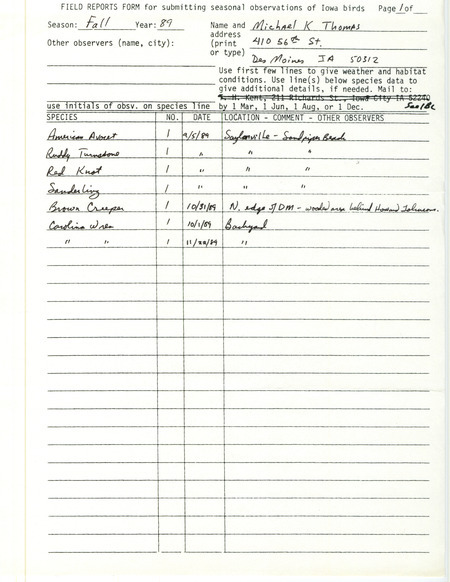 FIELD REPORTS FORM for submitting seasonal observations of Iowa birds Page 1 of
Season: Fall Year: 89 Name and Michael K Thomas
address
Other observers (name, city): (print 410 56th St.
or type) Des Moines IA 50312
Use first few lines to give weather and habitat
conditions. Use line(s) below species data to
give additional details, if needed. Mail to:
T. H. Kent, 211 Richards St., Iowa City IA 52240
use initials of obsv. on species line by 1 Mar, 1 Jun, 1 Aug. or 1 Dec.
SPECIES NO. DATE LOCATION - COMMENT - OTHER OBSERVERS
American Avocet 1 9/5/89 Saylorville - Sandpiper Beach
Ruddy Turnstone 1 " " "
Red Knot 1 " " "
Sanderling 1 " " "
Brown Creeper 1 10/31/89 N. edge of DM - wooded area behind Howard Johnsons.
Carolina Wren 1 10/1/89 Backyard
" " 1 11/20/89 "